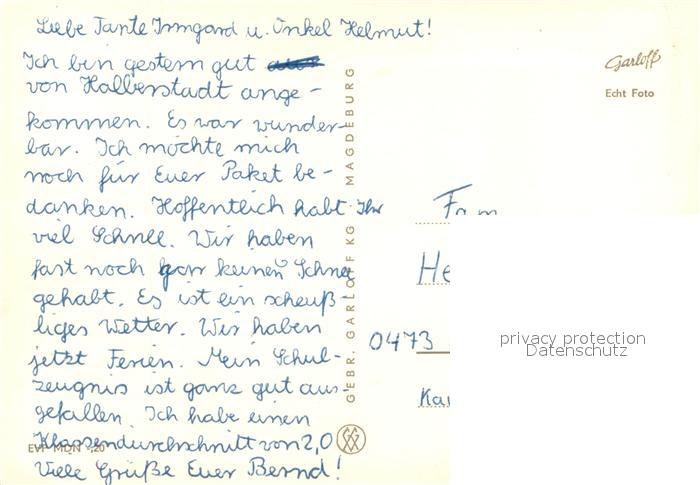 Liebe Tante Irmgard u. Onkel Helmut!
Ich bin gestern gut
von Halberstadt ange-
kommen. Es war wunder-
bar. Ich möchte mich
noch für Euer Paket be-
danken. Hoffentlich habt Ihr
viel Schnee. Wir haben
fast noch gar keinen Schnee
gehabt. Es ist ein scheuß-
liges Wetter. Wir haben
jetzt Ferien. Mein Schul-
zeugnis ist ganz gut aus-
gefallen. Ich habe einen
Klassendurchschnitt von 2,0
Viele Grüße Euer Bernd!
EVP MDN -,20
GEBR. GARLOFF KG MAGDEBURG
Garloff
Echt Foto
Fam
He
0473
Kar
privacy protection
Datenschutz